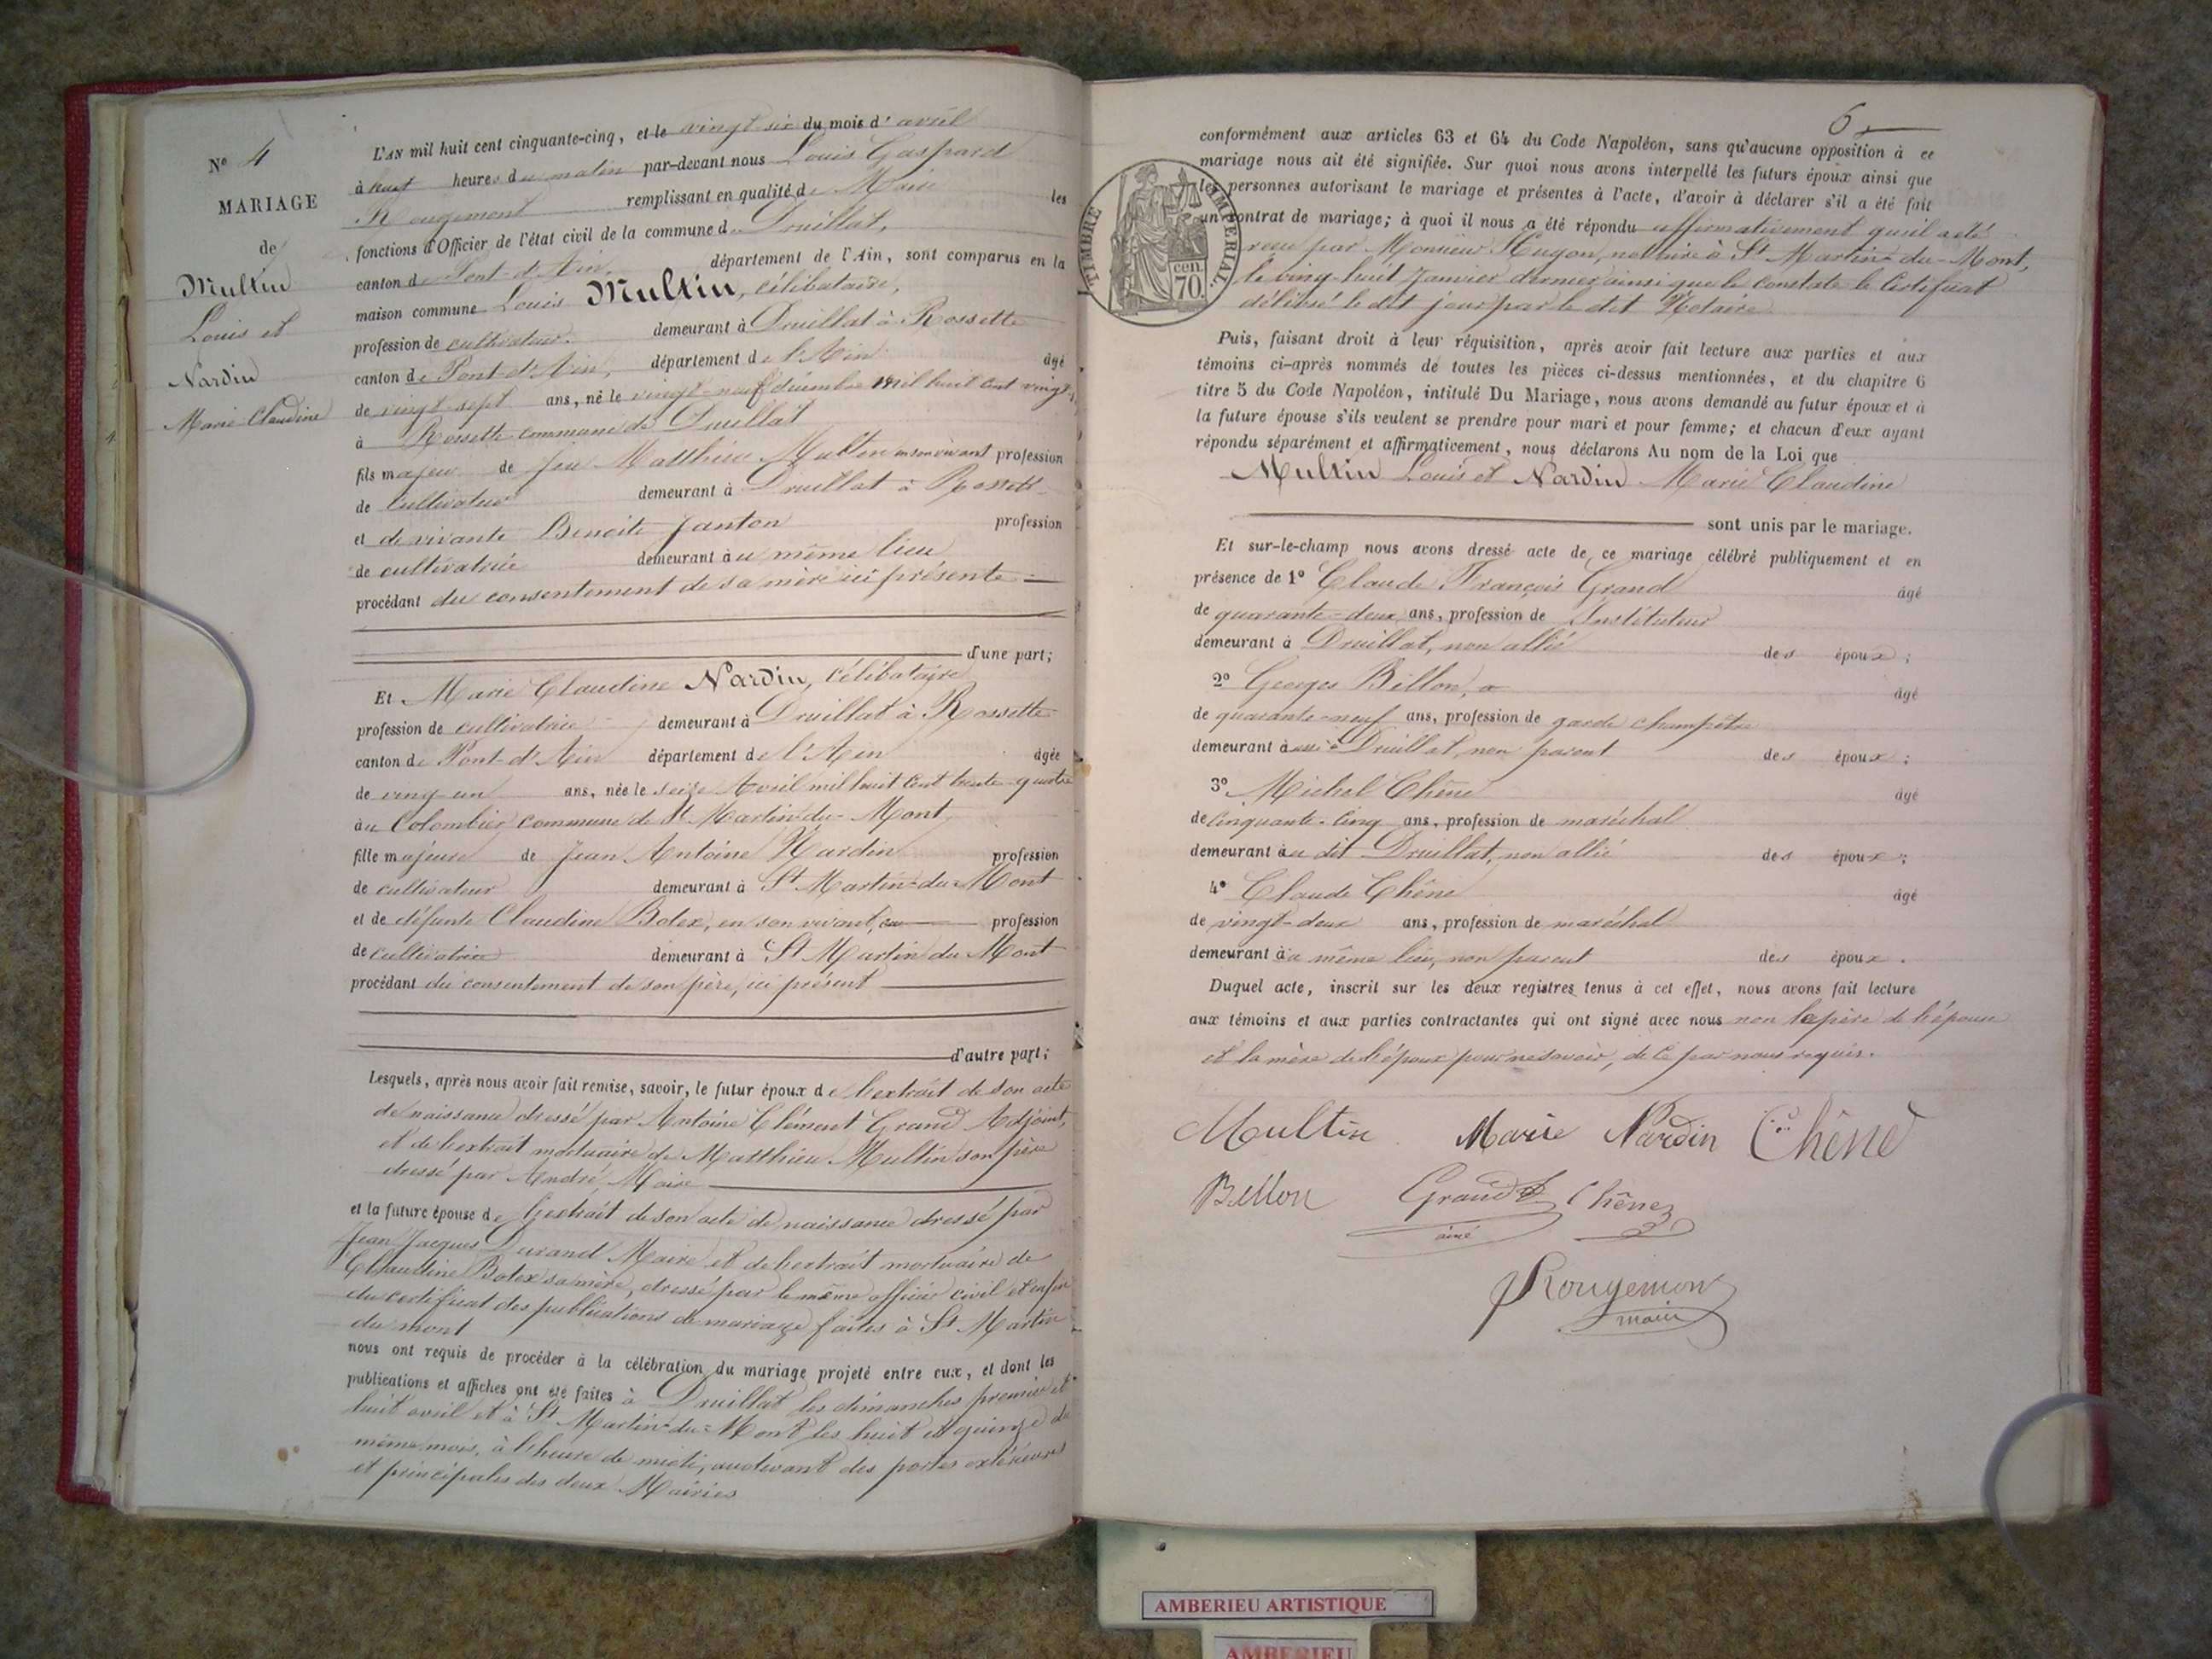 N° 4
MARIAGE
de
Multin
Louis et
Nardin
Marie Claudine
L'AN mil huit cent cinquante-cinq, et le vingt six du mois d'avril
à huit heures du matin par-devant nous Louis Gaspard
Rougemont remplissant en qualité de Maire les
fonctions d'Officier de l'état civil de la commune de Druillat,
canton de Pont-d'Ain, département de l'Ain, sont comparus en la
maison commune Louis Multin, célibataire,
profession de cultivateur. demeurant à Druillat à Rossette
canton de Pont-d'Ain, département de l'Ain âgé
de vingt sept ans, né le vingt-neuf décembre mil huit cent vingt
à Rossette commune de Druillat
fils majeur de feu Matthieu Multin en son vivant profession
de cultivateur demeurant à Druillat à Rossette
et de vivante Benoite Janton profession
de cultivatrice demeurant au même lieu
procédant du consentement de sa mère ici présente
d'une part;
Et Marie Claudine Nardin, célibataire
profession de cultivatrice demeurant à Druillat à Rossette
canton de Pont-d'Ain département de l'Ain âgée
de vingt un ans, née le seize Avril mil huit cent trente-quatre
au Colombier commune de St Martin-du-Mont
fille majeure de Jean Antoine Nardin profession
de cultivateur demeurant à St Martin-du-Mont
et de défunte Claudine Bolex, en son vivant, profession
de cultivatrice demeurant à St Martin du Mont
procédant du consentement de son père, ici présent
d'autre part;
Lesquels, après nous avoir fait remise, savoir, le futur époux de l'extrait de son acte
de naissance dressé par Antoine Clément Grand Adjoint,
et de l'extrait mortuaire de Matthieu Multin son père
dressé par André, Maire
et la future épouse de l'extrait de son acte de naissance dressé par
Jean Jacques Durand Maire et de l'extrait mortuaire de
Claudine Bolex sa mère, dressé par le même officier civil et enfin
du certificat des publications de mariage faites à St Martin
du mont
nous ont requis de procéder à la célébration du mariage projeté entre eux, et dont les
publications et affiches ont été faites à Druillat les dimanches premier et
huit avril et à St Martin-du-Mont les huit et quinze du
même mois, à l'heure de midi, audevant des portes extérieures
et principales des deux Mairies
6
conformément aux articles 63 et 64 du Code Napoléon, sans qu'aucune opposition à ce
mariage nous ait été signifiée. Sur quoi nous avons interpellé les futurs époux ainsi que
les personnes autorisant le mariage et présentes à l'acte, d'avoir à déclarer s'il a été fait
un contrat de mariage; à quoi il nous a été répondu affirmativement qu'il a été
reçu par Monsieur Hugon, notaire à St Martin-du-Mont,
le vingt-huit Janvier dernier ainsi que le constate le Certificat
délivré le dit jour par le dit Notaire
TIMBRE IMPERIAL
70 cen.
Puis, faisant droit à leur réquisition, après avoir fait lecture aux parties et aux
témoins ci-après nommés de toutes les pièces ci-dessus mentionnées, et du chapitre 6
titre 5 du Code Napoléon, intitulé Du Mariage, nous avons demandé au futur époux et à
la future épouse s'ils veulent se prendre pour mari et pour femme; et chacun d'eux ayant
répondu séparément et affirmativement, nous déclarons Au nom de la Loi que
Multin Louis et Nardin Marie Claudine
sont unis par le mariage.
Et sur-le-champ nous avons dressé acte de ce mariage célébré publiquement et en
présence de 1° Claude François Grand âgé
de quarante-deux ans, profession de Instituteur
demeurant à Druillat, non allié des époux;
2° Georges Billon, âgé
de quarante-neuf ans, profession de garde champêtre
demeurant à Druillat, non parent des époux;
3° Michel Chêne âgé
de cinquante-cinq ans, profession de maréchal
demeurant au dit Druillat, non allié des époux;
4° Claude Chêne âgé
de vingt-deux ans, profession de maréchal
demeurant au même lieu, non parent des époux.
Duquel acte, inscrit sur les deux registres tenus à cet effet, nous avons fait lecture
aux témoins et aux parties contractantes qui ont signé avec nous non le père de l'épouse
et la mère de l'époux pour ne savoir, de ce par nous requis.
Moultin Marie Nardin Chêne
Billon Grand Chêne
ainé
Rougemont
maire
AMBERIEU ARTISTIQUE
AMBERIEU